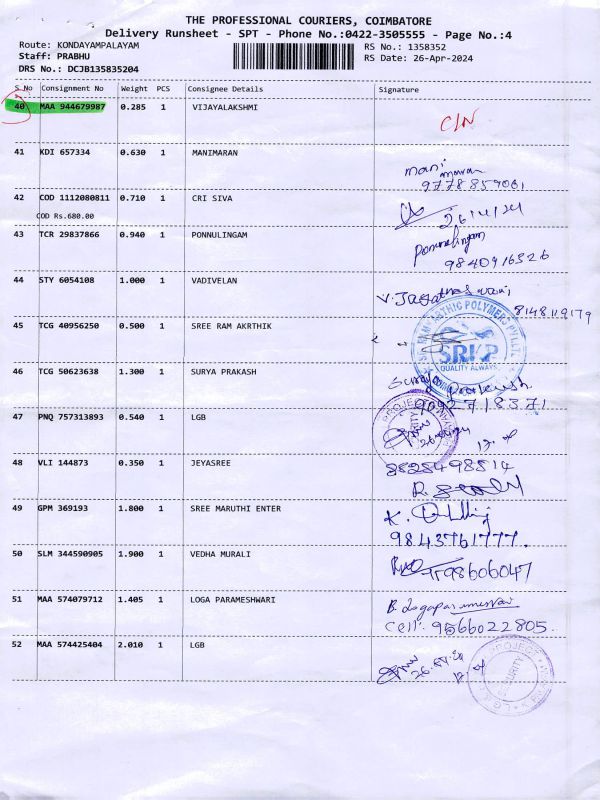 THE PROFESSIONAL COURIERS, COIMBATORE
Delivery Runsheet - SPT - Phone No.:0422-3505555 - Page No.:4
Route: KONDAYAMPALAYAM RS No.: 1358352
Staff: PRABHU RS Date: 26-Apr-2024
DRS No.: DCJB135835204
S No Consignment No Weight PCS Consignee Details Signature
40 MAA 944679987 0.285 1 VIJAYALAKSHMI
41 KDI 657334 0.630 1 MANIMARAN
mani
maran
42 COD 1112080811 0.710 1 CRI SIVA
26/4/24
COD Rs.680.00
43 TCR 29837866 0.940 1 PONNULINGAM
Ponnulingam
9840916526
44 STY 6054108 1.000 1 VADIVELAN
8148119179
45 TCG 40956250 0.500 1 SREE RAM AKRTHIK
SRKP
QUALITY ALWAYS
46 TCG 50623638 1.300 1 SURYA PRAKASH
Surya Prakash
9092718371
47 PNQ 757313893 0.540 1 LGB
PROJECT
48 VLI 144873 0.350 1 JEYASREE
49 GPM 369193 1.800 1 SREE MARUTHI ENTER
K.
9843761777.
50 SLM 344590905 1.900 1 VEDHA MURALI
98606047
51 MAA 574079712 1.405 1 LOGA PARAMESHWARI
B. Logaparameswari
Cell: 9566022805.
52 MAA 574425404 2.010 1 LGB
PROJECT
SECURITY